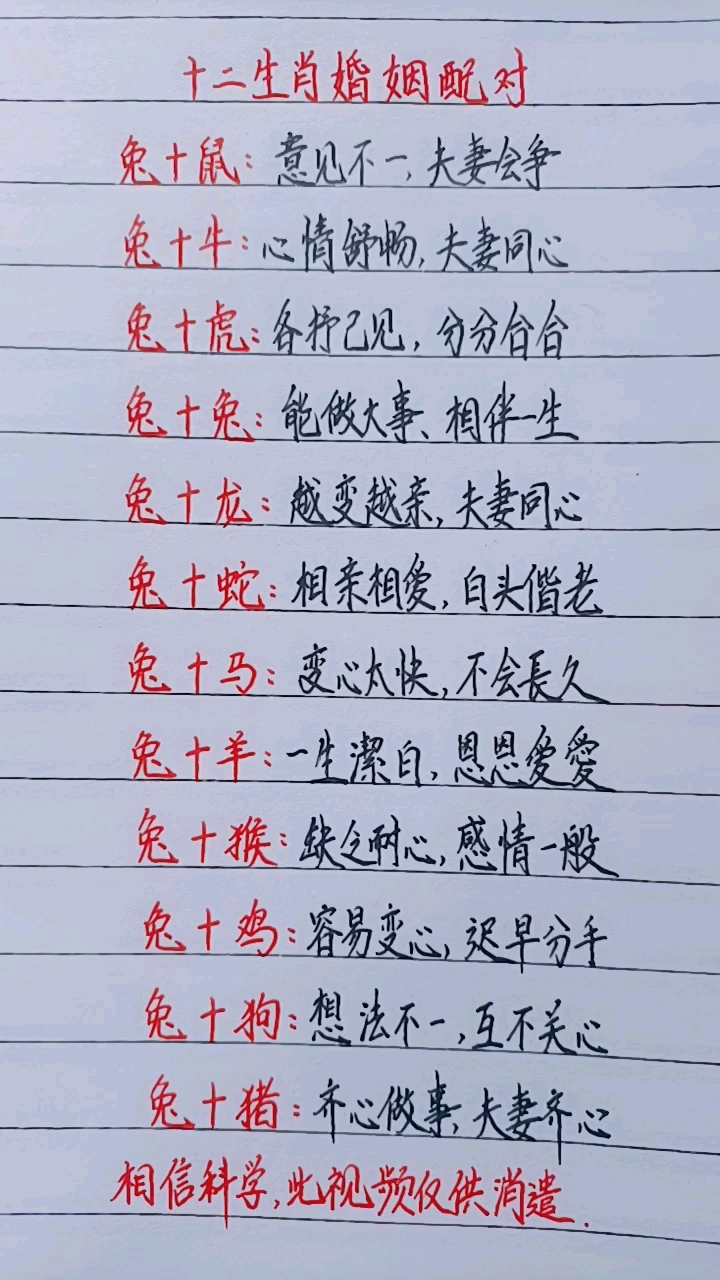 十二生肖婚姻配对
兔+鼠：意见不一，夫妻会争
兔+牛：心情舒畅，夫妻同心
兔+虎：各抒己见，分分合合
兔+兔：能做大事、相伴一生
兔+龙：越变越亲，夫妻同心
兔+蛇：相亲相爱，白头偕老
兔+马：变心太快，不会長久
兔+羊：一生潔白，恩恩爱愛
兔+猴：缺乏耐心，感情一般
兔+鸡：容易变心，迟早分手
兔+狗：想法不一，互不关心
兔+猪：齐心做事、夫妻齐心
相信科学，此视频仅供消遣.